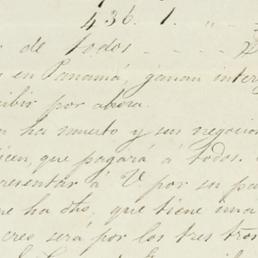 436. 1. "
de todos - - -
en Panamá, ganan inter
cibir por ahora.
ha muerto y sus negocio
icen, que pagará á todos.
presentar á V. por su pa
ne ha dho, que tiene una
creo será por los tres